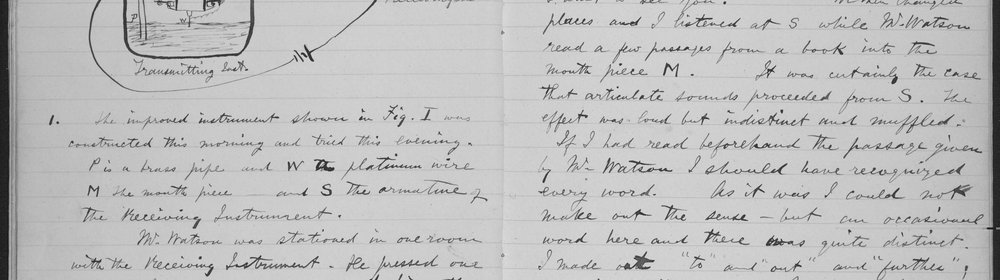 P
W
Transmitting Inst.
1. The improved instrument shown in Fig. I was
constructed this morning and tried this evening.
P is a brass pipe and W the platinum wire
M the mouth piece and S the armature of
the Receiving Instrument.
Mr. Watson was stationed in one room
with the Receiving Instrument. He pressed one
to see you.
changed
places and I listened at S while Mr. Watson
read a few passages from a book into the
mouth piece M. It was certainly the case
that articulate sounds proceeded from S. The
effect was loud but indistinct and muffled.
If I had read beforehand the passage given
by Mr. Watson I should have recognized
every word. As it was I could not
make out the sense - but an occasional
word here and there was quite distinct.
I made out "to" and "out" and "further";